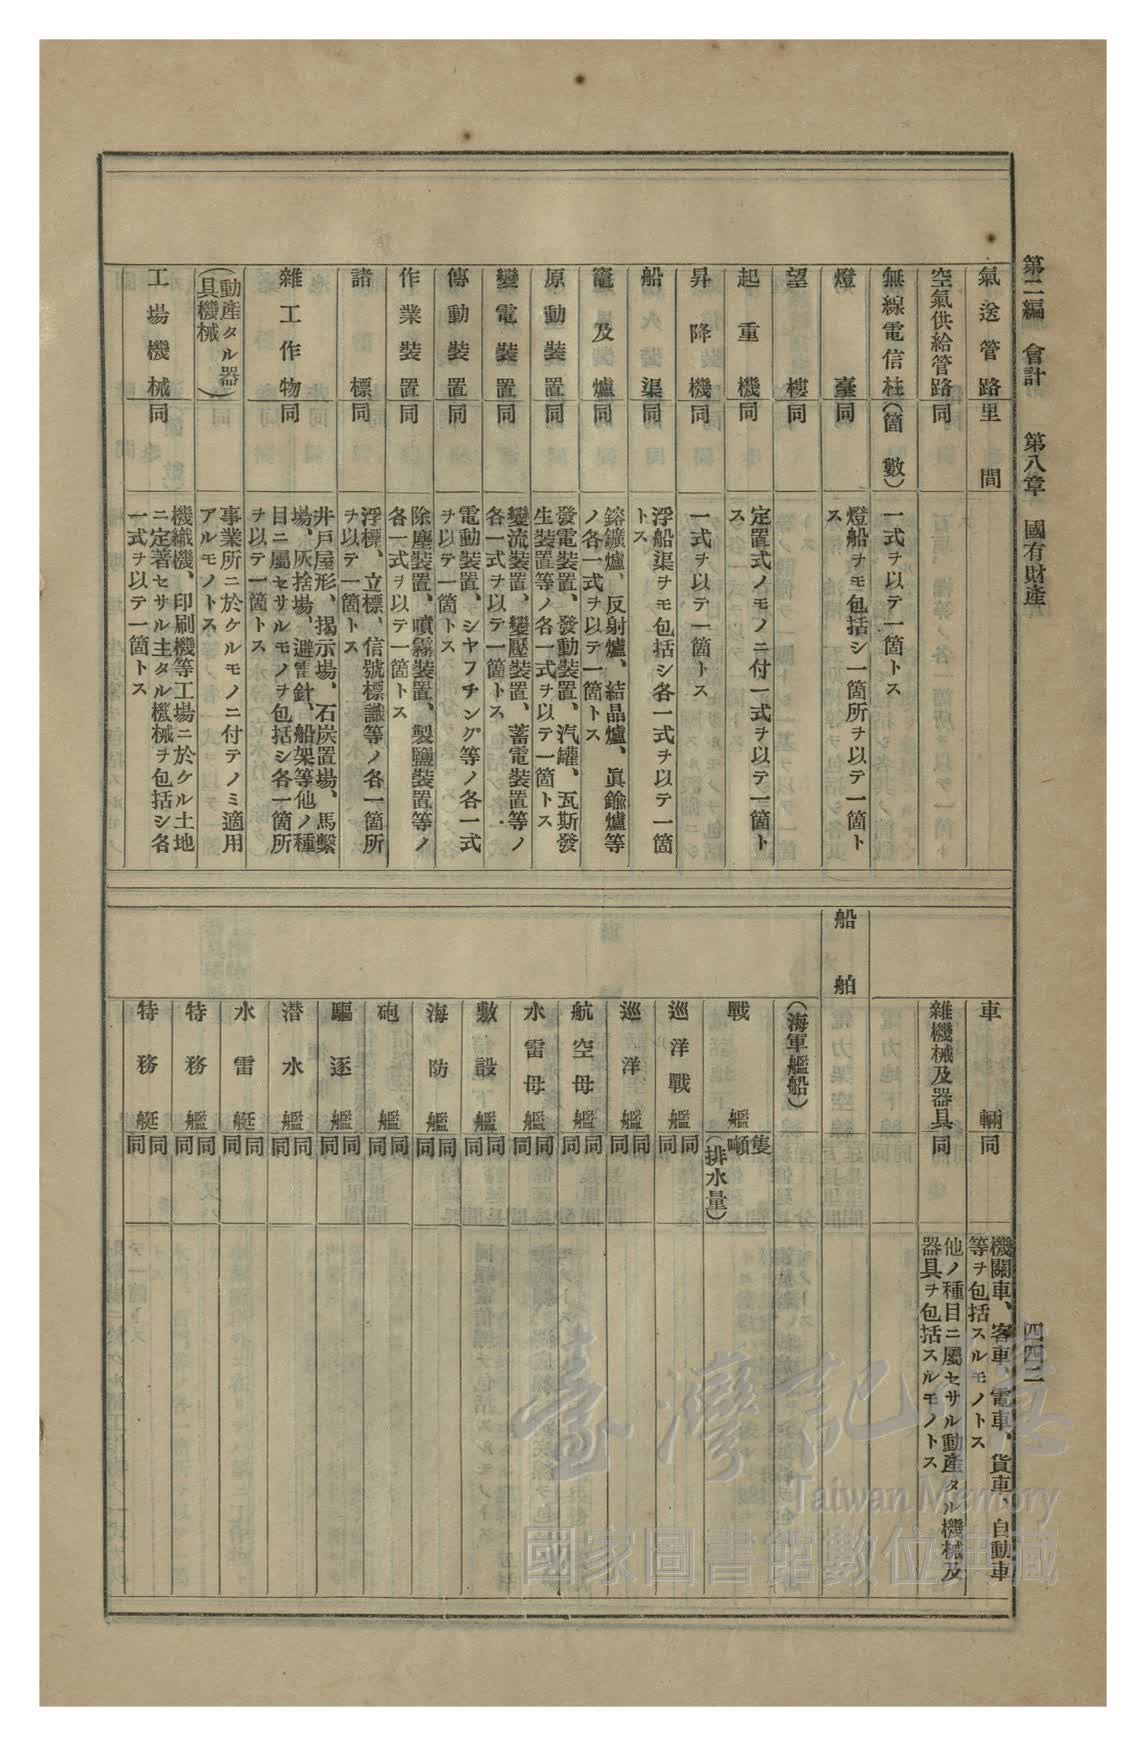 第二編 會計 第八章 國有財產 四四二
氣送管路 里間
空氣供給管路 同
無線電信柱 (箇數) 一式ヲ以テ一箇トス
燈臺 同 燈船ヲモ包括シ一箇所ヲ以テ一箇ト
ス
望樓 同
起重機 同 定置式ノモノニ付一式ヲ以テ一箇ト
ス
昇降機 同 一式ヲ以テ一箇トス
船渠 同 浮船渠ヲモ包括シ各一式ヲ以テ一箇
トス
竈及爐 同 鎔鑛爐、反射爐、結晶爐、眞鍮爐等
ノ各一式ヲ以テ一箇トス
原動裝置 同 發電裝置、發動裝置、汽罐、瓦斯發
生裝置等ノ各一式ヲ以テ一箇トス
變電裝置 同 變流裝置、變壓裝置、蓄電裝置等ノ
各一式ヲ以テ一箇トス
傳動裝置 同 電動裝置、シヤフチング等ノ各一式
ヲ以テ一箇トス
作業裝置 同 除塵裝置、噴霧裝置、製鹽裝置等ノ
各一式ヲ以テ一箇トス
諸標 同 浮標、立標、信號標識等ノ各一箇所
ヲ以テ一箇トス
雜工作物 同 井戶屋形、揭示場、石炭置場、馬繫
場、灰捨場、避雷針、船架等他ノ種
目ニ屬セサルモノヲ包括シ各一箇所
ヲ以テ一箇トス
(動產タル器
具機械) 事業所ニ於ケルモノニ付テノミ適用
アルモノトス
工場機械 同 機織機、印刷機等工場ニ於ケル土地
ニ定著セサル主タル機械ヲ包括シ各
一式ヲ以テ一箇トス
車輛 同 機關車、客車、電車、貨車、自動車
等ヲ包括スルモノトス
雜機械及器具 同 他ノ種目ニ屬セサル動產タル機械及
器具ヲ包括スルモノトス
船舶
(海軍艦船)
戰艦 隻
噸(排水量)
巡洋戰艦 同
同
巡洋艦 同
同
航空母艦 同
同
水雷母艦 同
同
敷設艦 同
同
海防艦 同
同
砲艦 同
同
驅逐艦 同
同
潛水艦 同
同
水雷艇 同
同
特務艦 同
同
特務艇 同
同
臺灣記憶
Taiwan Memory
國家圖書館數位典藏